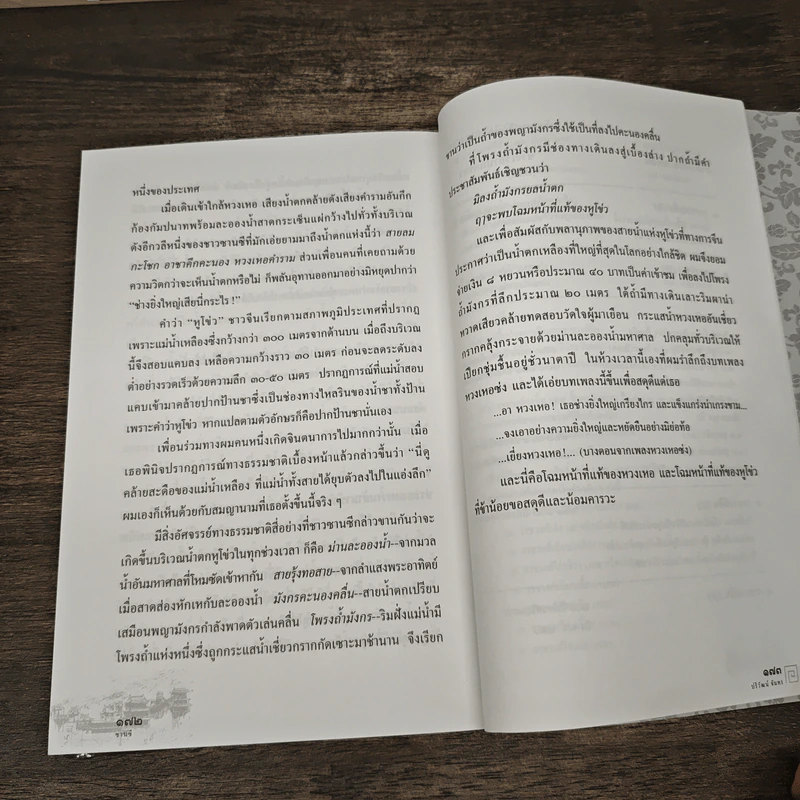 หนึ่งของประเทศ
เมื่อเดินเข้าใกล้หวงเหอ เสียงน้ำตกคล้ายดังเสียงคำรามอันกึก
ก้องกัมปนาทพร้อมละอองน้ำสาดกระเซ็นแผ่กว้างไปทั่วทั้งบริเวณ
ดังอีกวลีหนึ่งของชาวชานซีที่มักเอ่ยยามมาถึงน้ำตกแห่งนี้ว่า สายลม
กะโชก อาชาคึกคะนอง หวงเหอคำราม ส่วนเพื่อนคนที่เคยถามด้วย
ความวิตกว่าจะเห็นน้ำตกหรือไม่ ก็พลันอุทานออกมาอย่างมิหยุดปากว่า
“ช่างยิ่งใหญ่เสียนี่กระไร !”
คำว่า “หูโข่ว” ชาวจีนเรียกตามสภาพภูมิประเทศที่ปรากฏ
เพราะแม่น้ำเหลืองซึ่งกว้างกว่า ๓๐๐ เมตรจากด้านบน เมื่อถึงบริเวณ
นี้จึงสอบแคบลง เหลือความกว้างราว ๓๐ เมตร ก่อนจะลดระดับลง
ต่ำอย่างรวดเร็วด้วยความลึก ๓๐-๕๐ เมตร ปรากฏการณ์ที่แม่น้ำสอบ
แคบเข้ามาคล้ายปากป้านชาซึ่งเป็นช่องทางไหลรินของน้ำชาทั้งป้าน
เพราะคำว่าหูโข่ว หากแปลตามตัวอักษรก็คือปากป้านชานั่นเอง
เพื่อนร่วมทางผมคนหนึ่งเกิดจินตนาการไปมากกว่านั้น เมื่อ
เธอพินิจปรากฏการณ์ทางธรรมชาติเบื้องหน้าแล้วกล่าวขึ้นว่า “นี่ดู
คล้ายสะดือของแม่น้ำเหลือง ที่แม่น้ำทั้งสายได้ยุบตัวลงไปในแอ่งลึก”
ผมเองก็เห็นด้วยกับสมญานามที่เธอตั้งขึ้นนี้จริง ๆ
มีสิ่งอัศจรรย์ทางธรรมชาติสี่อย่างที่ชาวชานซีกล่าวขานกันว่าจะ
เกิดขึ้นบริเวณน้ำตกหูโข่วในทุกช่วงเวลา ก็คือ ม่านละอองน้ำ--จากมวล
น้ำอันมหาศาลที่โหมซัดเข้าหากัน สายรุ้งทอสาย--จากลำแสงพระอาทิตย์
เมื่อสาดส่องหักเหกับละอองน้ำ มังกรคะนองคลื่น--สายน้ำตกเปรียบ
เสมือนพญามังกรกำลังพาดตัวเล่นคลื่น โพรงถ้ำมังกร--ริมฝั่งแม่น้ำมี
โพรงถ้ำแห่งหนึ่งซึ่งถูกกระแสน้ำเชี่ยวกรากกัดเซาะมาช้านาน จึงเรียก
๑๗๒
ชานซี
ขานว่าเป็นถ้ำของพญามังกรซึ่งใช้เป็นที่ลงไปคะนองคลื่น
ที่โพรงถ้ำมังกรมีช่องทางเดินลงสู่เบื้องล่าง ปากถ้ำมีคำ
ประชาสัมพันธ์เชิญชวนว่า
มิลงถ้ำมังกรยลน้ำตก
ฤๅจะพบโฉมหน้าที่แท้ของหูโข่ว
และเพื่อสัมผัสกับพลานุภาพของสายน้ำแห่งหูโข่วที่ทางการจีน
ประกาศว่าเป็นน้ำตกเหลืองที่ใหญ่ที่สุดในโลกอย่างใกล้ชิด ผมจึงยอม
จ่ายเงิน ๘ หยวนหรือประมาณ ๔๐ บาทเป็นค่าเข้าชม เพื่อลงไปโพรง
ถ้ำมังกรที่ลึกประมาณ ๒๐ เมตร ใต้ถ้ำมีทางเดินเลาะริมผาน่า
หวาดเสียวคล้ายทดสอบวัดใจผู้มาเยือน กระแสน้ำหวงเหออันเชี่ยว
กรากคลุ้งกระจายด้วยม่านละอองน้ำมหาศาล ปกคลุมทั่วบริเวณให้
เปียกชุ่มชื้นอยู่ชั่วนาตาปี ในห้วงเวลานี้เองที่ผมรำลึกถึงบทเพลง
หวงเหอซ่ง และได้เอ่ยบทเพลงนี้ขึ้นเพื่อสดุดีแด่เธอ
...อา หวงเหอ! เธอช่างยิ่งใหญ่เกรียงไกร และแข็งแกร่งน่าเกรงขาม...
...จงเอาอย่างความยิ่งใหญ่และหยัดยืนอย่างมิย่อท้อ
...เยี่ยงหวงเหอ!... (บางตอนจากเพลงหวงเหอซ่ง)
และนี่คือโฉมหน้าที่แท้ของหวงเหอ และโฉมหน้าที่แท้ของหูโข่ว
ที่ข้าน้อยขอสดุดีและน้อมคารวะ
๑๗๓
ปริวัฒน์ จันทร